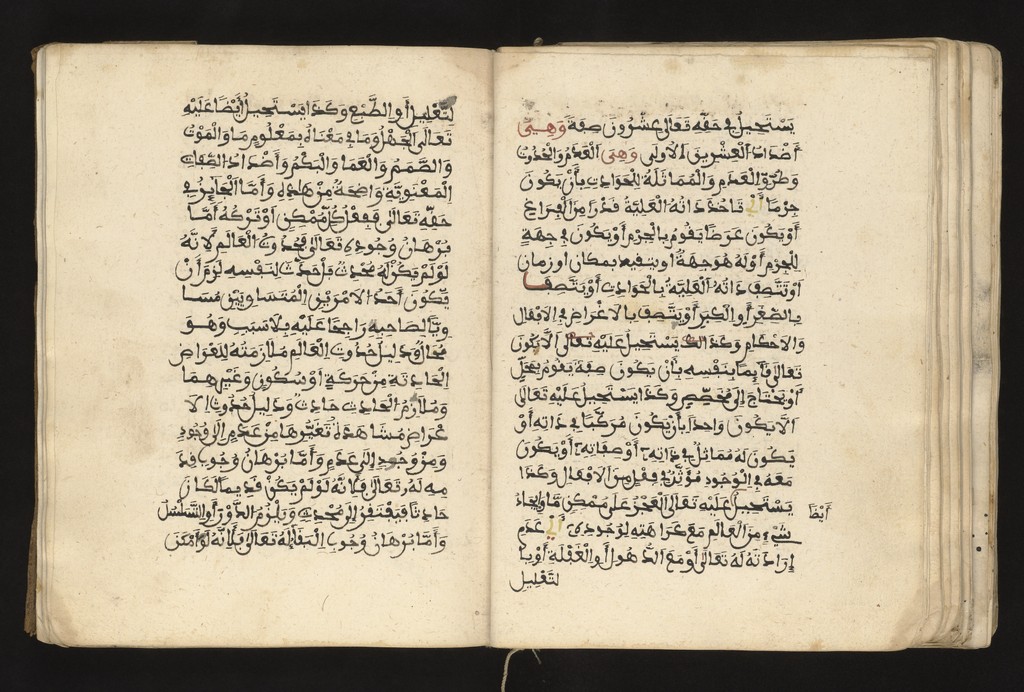 يستحيل في حقه تعالى عشرون صفة وهي
أضداد العشرين الأولى وهي العدم والحدوث
وطرو العدم والمماثلة للحوادث بأن يكون
جرما أي تأخذ ذاته العلية قدرا من الفراغ
أو يكون عرضا يقوم بالجرم أو يكون في جهة
للجرم أو له هو جهة أو يتقيد بمكان أو زمان
أو تتصف ذاته العلية بالحوادث أو يتصف
بالصغر أو الكبر أو يتصف بالأغراض في الأفعال
والأحكام وكذا يستحيل عليه تعالى ألا يكون
تعالى قائما بنفسه بأن يكون صفة يقوم بمحل
أو يحتاج إلى مخصص وكذا يستحيل عليه تعالى
ألا يكون واحدا بأن يكون مركبا في ذاته أو
يكون له مماثل في ذاته أو صفاته أو يكون
معه في الوجود مؤثر في فعل من الأفعال وكذا
يستحيل عليه تعالى العجز على ممكن ما وإيجاد
أيضا
شيء من العالم مع كراهته لوجوده أي عدم
إرادته له تعالى أو مع الذهول أو الغفلة أو با
لتعليل
لتعليل أو الطبع وكذا يستحيل أيضا عليه
تعالى الجهل وما في معناه بمعلوم ما والموت
والصمم والعما والبكم وأضداد الصفات
المعنوية واضحة من هذه وأما الجايز في
حقه تعالى ففعل كل ممكن أو تركه أما
برهان وجوده تعالى فحدوث العالم لأنه
لو لم يكن له محدث بل حدث لنفسه لزم أن
يكون أحد الأمرين المتساويين مسا
ويا لصاحبه راجحا عليه بلا سبب وهو
محال ودليل حدوث العالم ملازمته للعراض
الحادثة من حركة أو سكون وغيرهما
وملازم الحادث حادث ودليل حدوث الا
عراض مشاهدة تغيرها من عدم إلى وجود
ومن وجود إلى عدم وأما برهان وجوب قد
مه له تعالى فلأنه لو لم يكن قديما لكان
حادثا فيفتقر إلى محدث ويلزم الدور أو التسلسل
وأما برهان وجوب البقاء له تعالى فلأنه لو أمكن